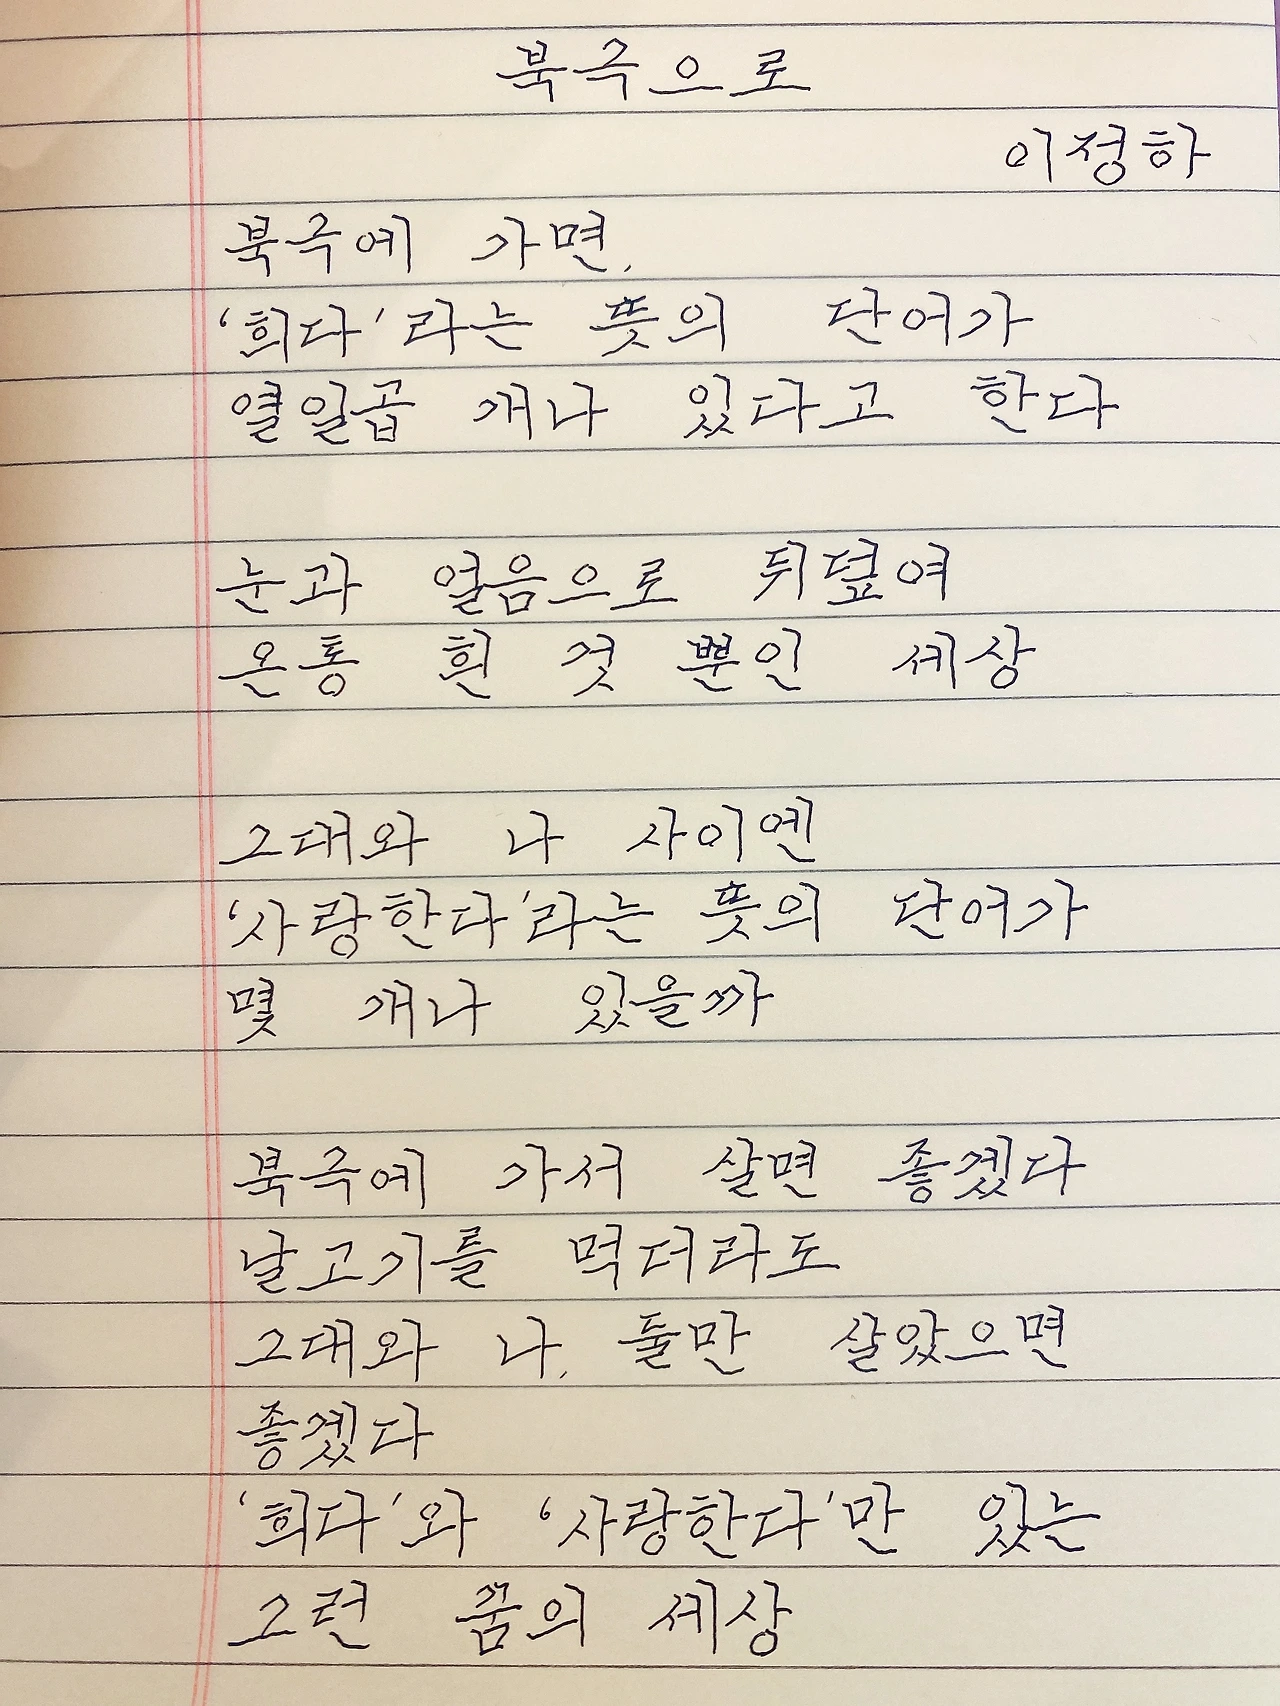 북극으로
이정하
북극에 가면,
'희다'라는 뜻의 단어가
열일곱 개나 있다고 한다
눈과 얼음으로 뒤덮여
온통 흰 것 뿐인 세상
그대와 나 사이엔
'사랑한다'라는 뜻의 단어가
몇 개나 있을까
북극에 가서 살면 좋겠다
날고기를 먹더라도
그대와 나, 둘만 살았으면
좋겠다
'희다'와 '사랑한다'만 있는
그런 꿈의 세상